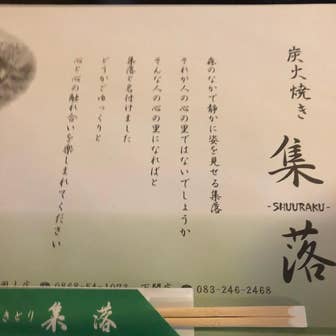 炭火焼き
集落
-SHUURAKU-
森のなかで静かに姿を見せる集落
それが人の心の里ではないでしょうか
そんな人の心の里になればと
集落と名付けました
どうかごゆっくりと
心と心の触れ合いを楽しまれてください
下関店 ☎ 083-246-2468
きとり 集落